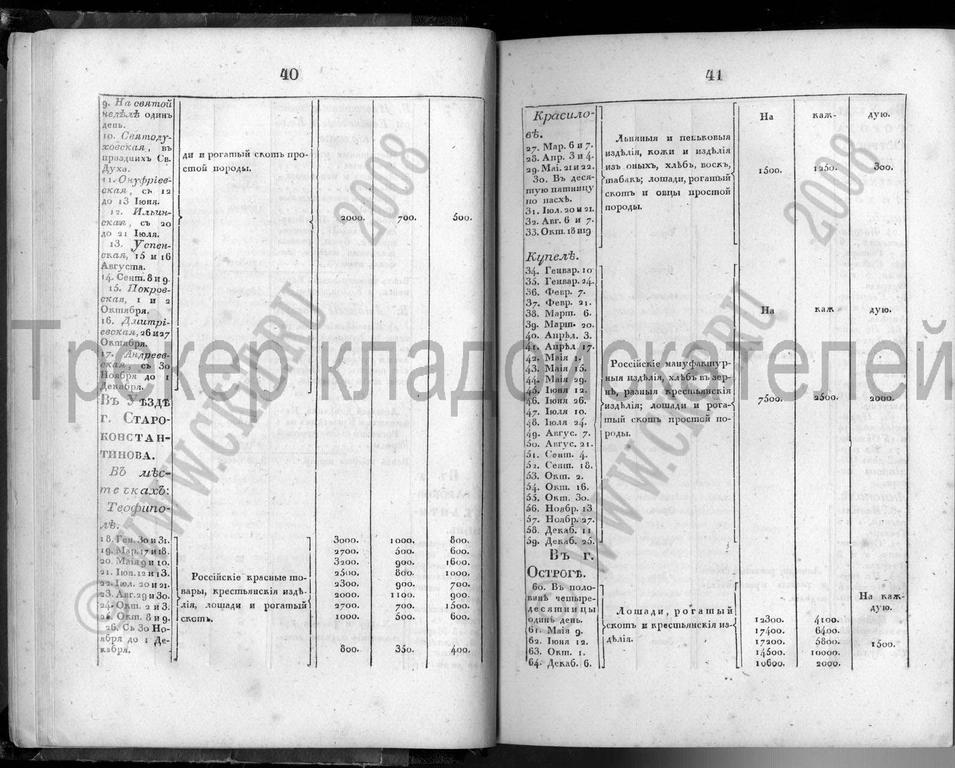 40
9. На святой
недѣлѣ одинъ
день.
10. Святоду-
ховская, въ
праздникъ Св.
Духа.
11. Онуфріев-
ская, съ 12
до 13 Іюня.
12. Ильин-
ская, съ 20
до 21 Іюля.
13. Успен-
ская, 15 и 16
Августа.
14. Сент. 8 и 9.
15. Покров-
ская, 1 и 2
Октября.
16. Дмитрі-
евская, 26 и 27
Октября.
17. Андреев-
ская, съ 30
Ноября до 1
Декабря.
ди и рогатый скотъ про-
стой породы.
2000. 700. 500.
Въ Уѣздѣ
г. Старо-
констан-
тинова.
Въ мѣс-
течкахъ:
Теофипо-
лѣ.
18. Ген. 30 и 31. 3000. 1000. 800.
19. Мар. 17 и 18. 2700. 500. 600.
20. Маія 9 и 10. 3200. 900. 1600.
21. Іюн. 12 и 13. 2500. 800. 1000.
22. Іюл. 20 и 21. 2300. 900. 700.
23. Авг. 29 и 30. 2000. 1100. 900.
24. Окт. 2 и 3. 2700. 700. 1500.
25. Окт. 8 и 9. 1000. 500. 600.
26. Съ 30 Но-
ября до 1 Де-
кабря. 800. 350. 400.
Россійскіе красные то-
вары, крестьянскія издѣ-
лія, лошади и рогатый
скотъ.
41
Красило-
вѣ.
27. Мар. 6 и 7.
28. Апр. 3 и 4.
29. Маі. 21 и 22.
30. Въ деся-
тую пятницу
по пасхѣ.
31. Іюл. 20 и 21.
32. Авг. 6 и 7.
33. Окт. 18 и 19
Льняныя и пеньковыя
издѣлія, кожи и издѣлія
изъ оныхъ, хлѣбъ, воскъ,
табакъ; лошади, рогатый
скотъ и овцы простой
породы.
На каж- дую.
1500. 1250. 300.
Купелѣ.
34. Генвар. 10
35. Генвар. 24.
36. Февр. 7.
37. Февр. 21.
38. Март. 6.
39. Март. 20.
40. Апрѣл. 3.
41. Апрѣл 17.
42. Маія 1.
43. Маія 15.
44. Маія 29.
45. Іюня 12.
46. Іюня 26.
47. Іюля 10.
48. Іюля 24.
49. Авгус. 7.
50. Авгус. 21.
51. Сент. 4.
52. Сент. 18.
53. Окт. 2.
54. Окт. 16.
55. Окт. 30.
56. Ноябр. 13
57. Ноябр. 27.
58. Декаб. 11
59. Декаб. 25.
Россійскіе мануфактур-
ныя издѣлія, хлѣбъ въ зер-
нѣ, разныя крестьянскія
издѣлія; лошади и рога-
тый скотъ простой по-
роды.
На каж дую.
7500. 2500. 2000.
Въ г.
Острогѣ.
60. Въ поло-
винѣ четыре-
десятницы
одинъ день. 12300. 4100.
61. Маія 9. 17400. 6400.
62. Іюня 12. 17200. 5800.
63. Окт. 1. 14500. 10000.
64. Декаб. 6. 10600. 2000.
Лошади, рогатый
скотъ и крестьянскія из-
дѣлія.
На каж-
дую.
1500.
Трекер кладоискателей
© WWW.CKB.RU 2008
© WWW.CKB.RU 2008